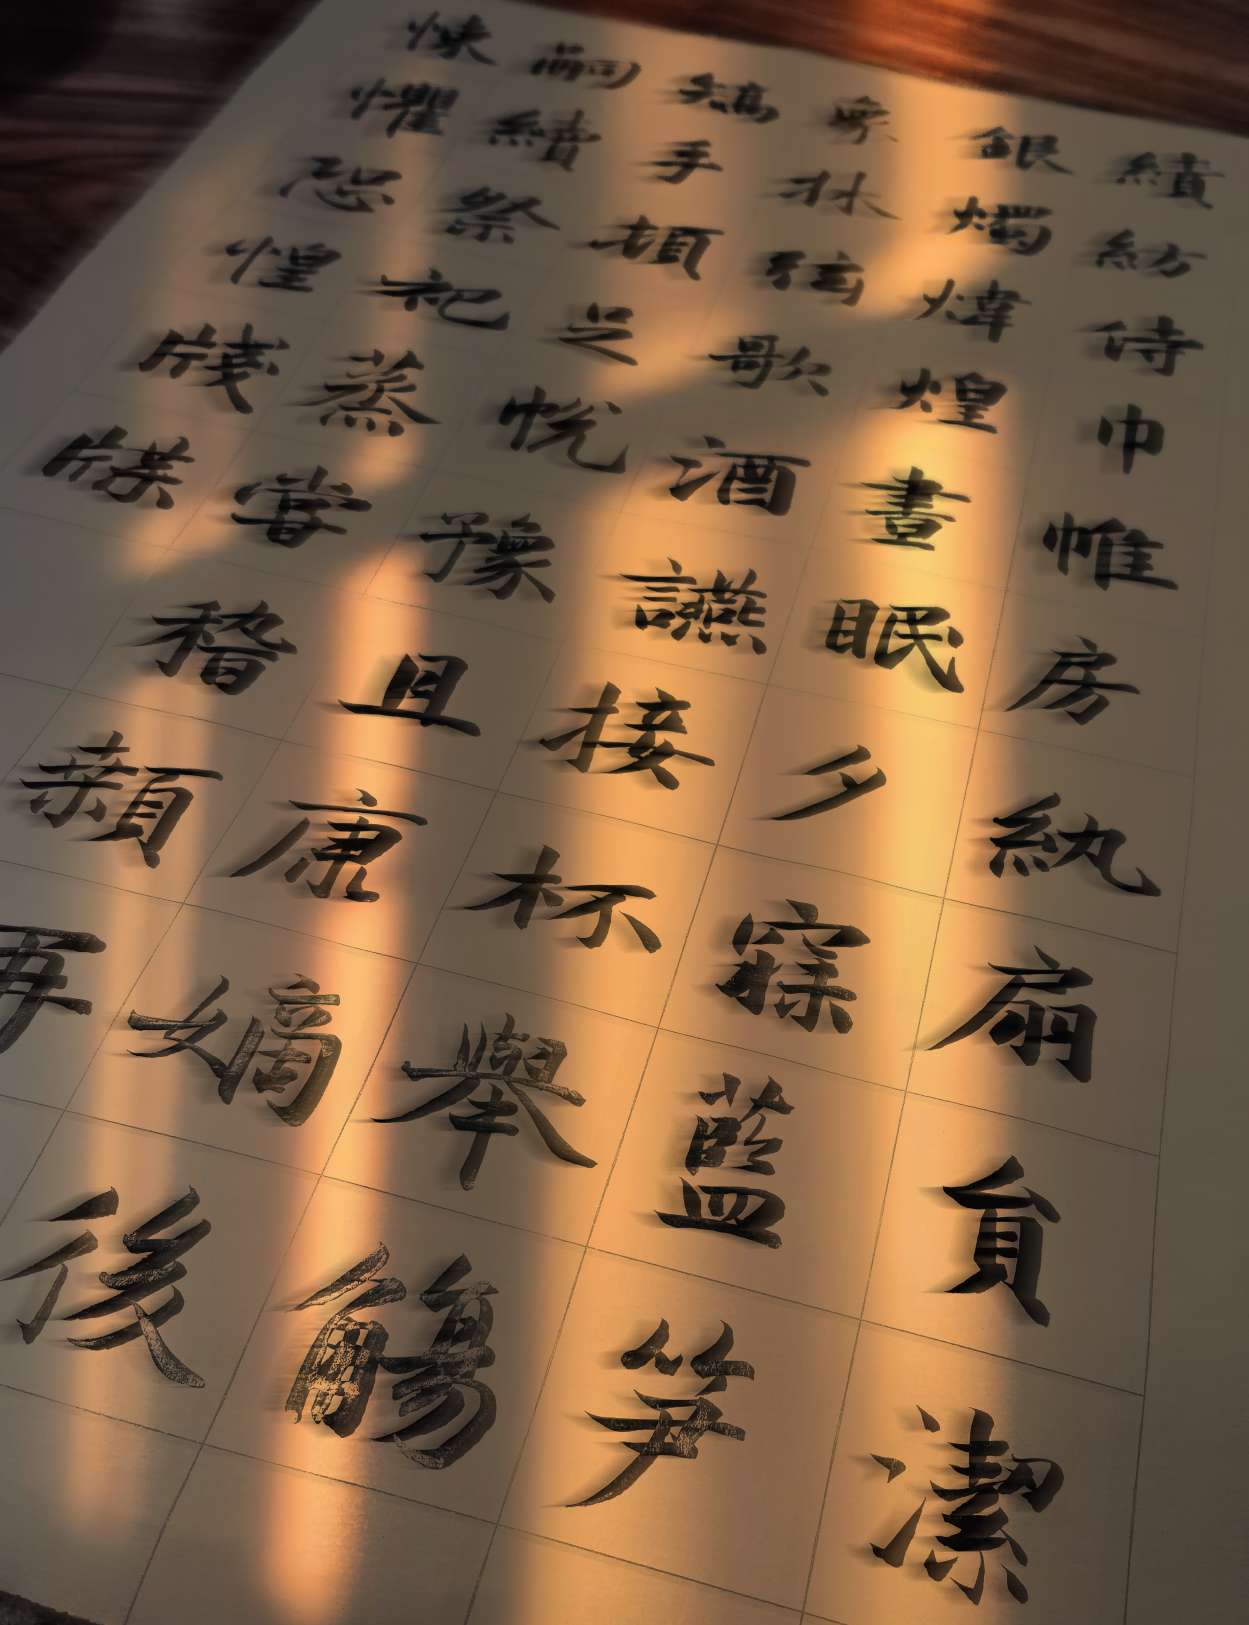 績紡侍巾帷房紈扇貟潔
銀燭煒煌晝眠夕寐藍笋
象牀弦歌酒讌接杯舉觴
矯手頓足悅豫且康嫡後
嗣續祭祀蒸嘗稽顙再
悚懼恐惶牋牒